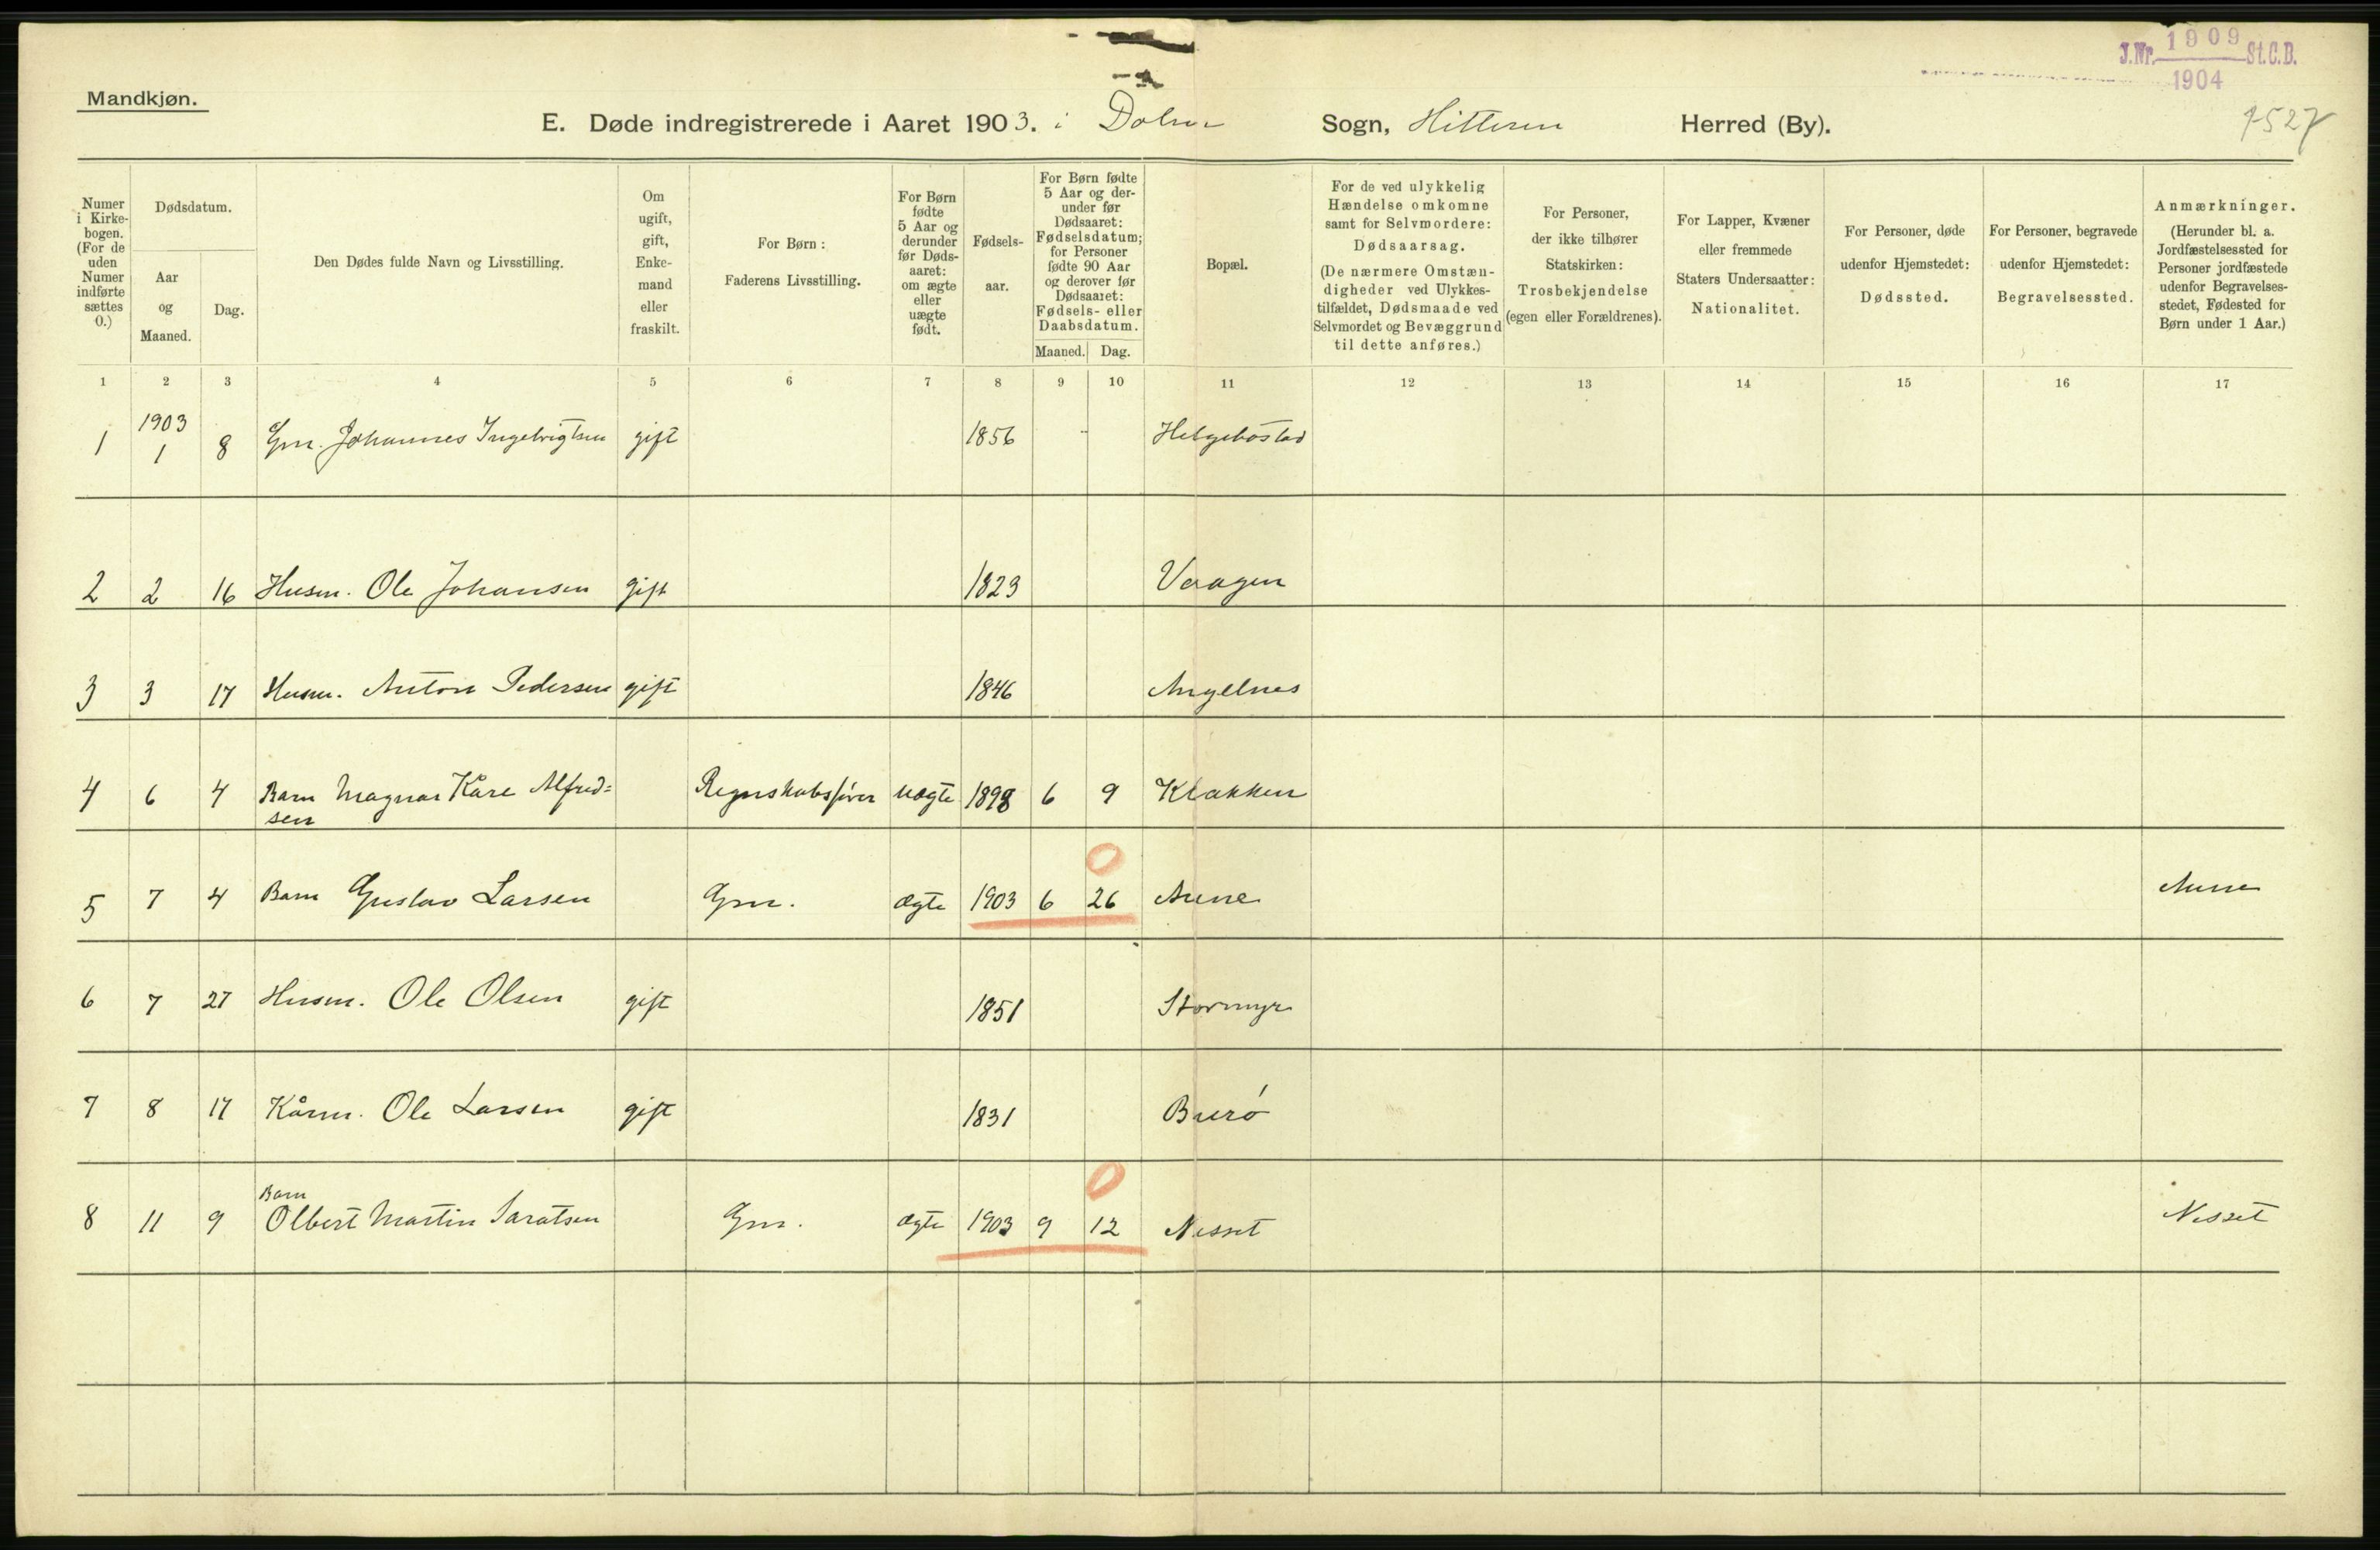 J.Nr. 1909 St.C.B.
1904
Mandkjøn.
E. Døde indregistrerede i Aaret 1903. i Dolm Sogn, Hitteren Herred (By).
7527
Numer i Kirkebogen. (For de uden Numer indførte sættes 0.)
Dødsdatum.
Aar og Maaned.
Dag.
Den Dødes fulde Navn og Livsstilling.
Om ugift, gift, Enkemand eller fraskilt.
For Børn: Faderens Livsstilling.
For Børn fødte 5 Aar og derunder før Dødsaaret: om ægte eller uægte født.
Fødselsaar.
For Børn fødte 5 Aar og derunder før Dødsaaret: Fødselsdatum; for Personer fødte 90 Aar og derover før Dødsaaret: Fødsels- eller Daabsdatum.
Maaned. Dag.
Bopæl.
For de ved ulykkelig Hændelse omkomne samt for Selvmordere: Dødsaarsag. (De nærmere Omstændigheder ved Ulykkestilfældet, Dødsmaade ved Selvmordet og Bevæggrund til dette anføres.)
For Personer, der ikke tilhører Statskirken: Trosbekjendelse (egen eller Forældrenes).
For Lapper, Kvæner eller fremmede Staters Undersaatter: Nationalitet.
For Personer, døde udenfor Hjemstedet: Dødssted.
For Personer, begravede udenfor Hjemstedet: Begravelsessted.
Anmærkninger. (Herunder bl. a. Jordfæstelsessted for Personer jordfæstede udenfor Begravelsesstedet, Fødested for Børn under 1 Aar.)
1 2 3 4 5 6 7 8 9 10 11 12 13 14 15 16 17
1903
1 1 8 Gm. Johannes Ingebrigtsen gift 1856 Helgebostad
2 2 16 Husm. Ole Johansen gift 1823 Vaagen
3 3 17 Husm. Anton Pedersen gift 1846 Angelnes
4 6 4 Barn Magnar Kåre Alfred= Regnskabsfører uægte 1898 6 9 Klakken
sen
0
5 7 4 Barn Gustav Larsen Gm. ægte 1903 6 26 Aune Aune
6 7 27 Husm. Ole Olsen gift 1851 Stormyr
7 8 17 Kårm. Ole Larsen gift 1831 Burø
0
Barn
8 11 9 Olbert Martin Saratsen Gm. ægte 1903 9 12 Nesset Nesset